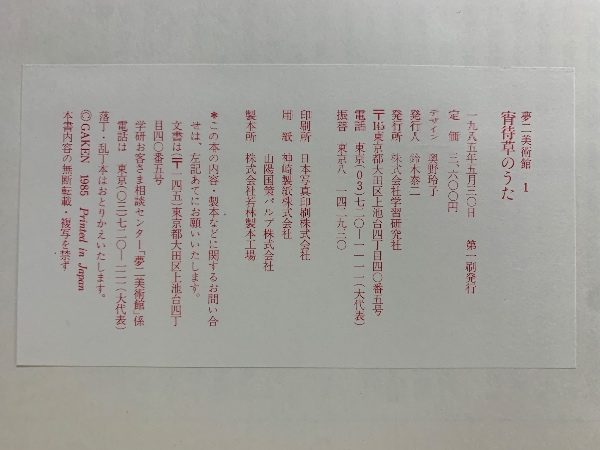 夢二美術館 1
宵待草のうた
一九八五年五月三〇日 第一刷発行
定 価 三、六〇〇円
デザイン 奥野玲子
発行人 鈴木泰二
発行所 株式会社学習研究社
〒145東京都大田区上池台四丁目四〇番五号
電話 東京(03)七二〇―一一一一(大代表)
振替 東京八―一四二九三〇
印刷所 日本写真印刷株式会社
用 紙 神崎製紙株式会社
山陽国策パルプ株式会社
製本所 株式会社若林製本工場
*この本の内容・製本などに関するお問い合
せは、左記あてにお願いいたします。
文書は=〒一四五)東京都大田区上池台四丁
目四〇番五号
学研お客さま相談センター「夢二美術館」係
電話は 東京(〇三)七二〇―一一一一(大代表)
落丁・乱丁本はおとりかえいたします。
©GAKEN 1985 Printed in Japan
本書内容の無断転載・複写を禁ず